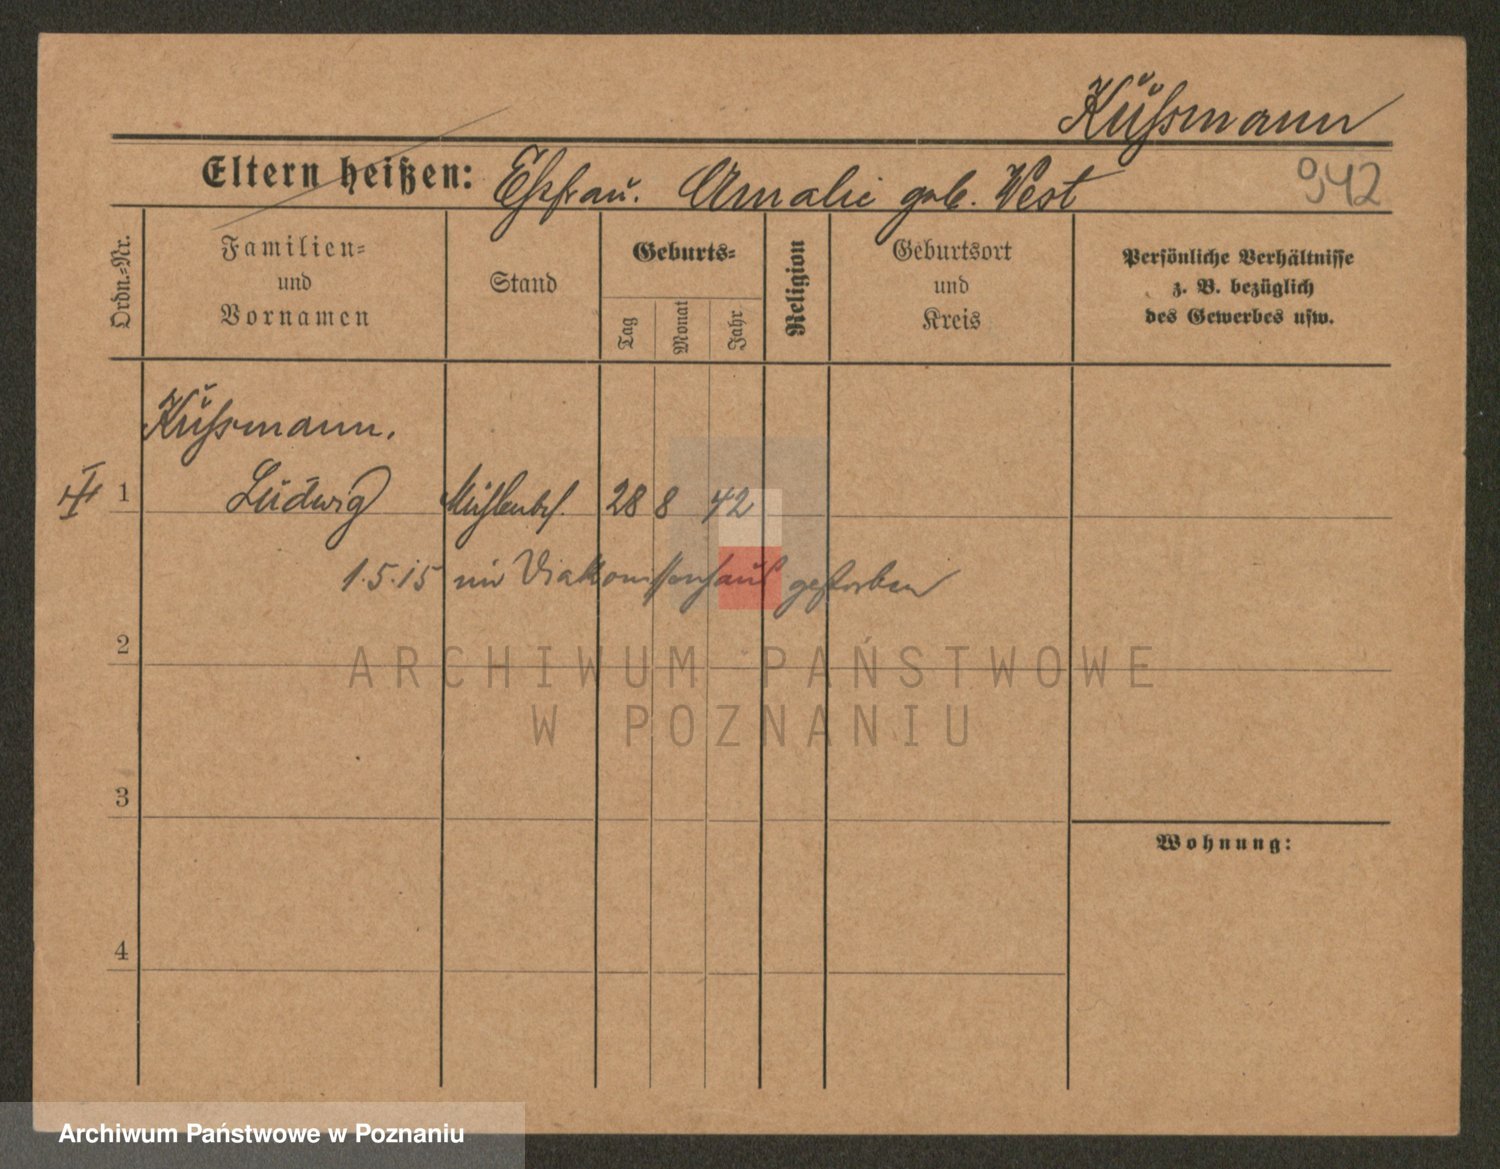 Küßmann
Eltern heißen: Ehefrau. Amalie geb. West
942
Ordn.-Nr.
Familien-
und
Vornamen
Stand
Geburts-
Tag
Monat
Jahr
Religion
Geburtsort
und
Kreis
Persönliche Verhältnisse
z. B. bezüglich
des Gewerbes usw.
Küßmann.
1 Ludwig Mühlenbes. 28 8 42
1.5.15 im Diakonissenhaus gestorben
2
3
4
Wohnung:
ARCHIWUM PAŃSTWOWE
W POZNANIU
Archiwum Państwowe w Poznaniu